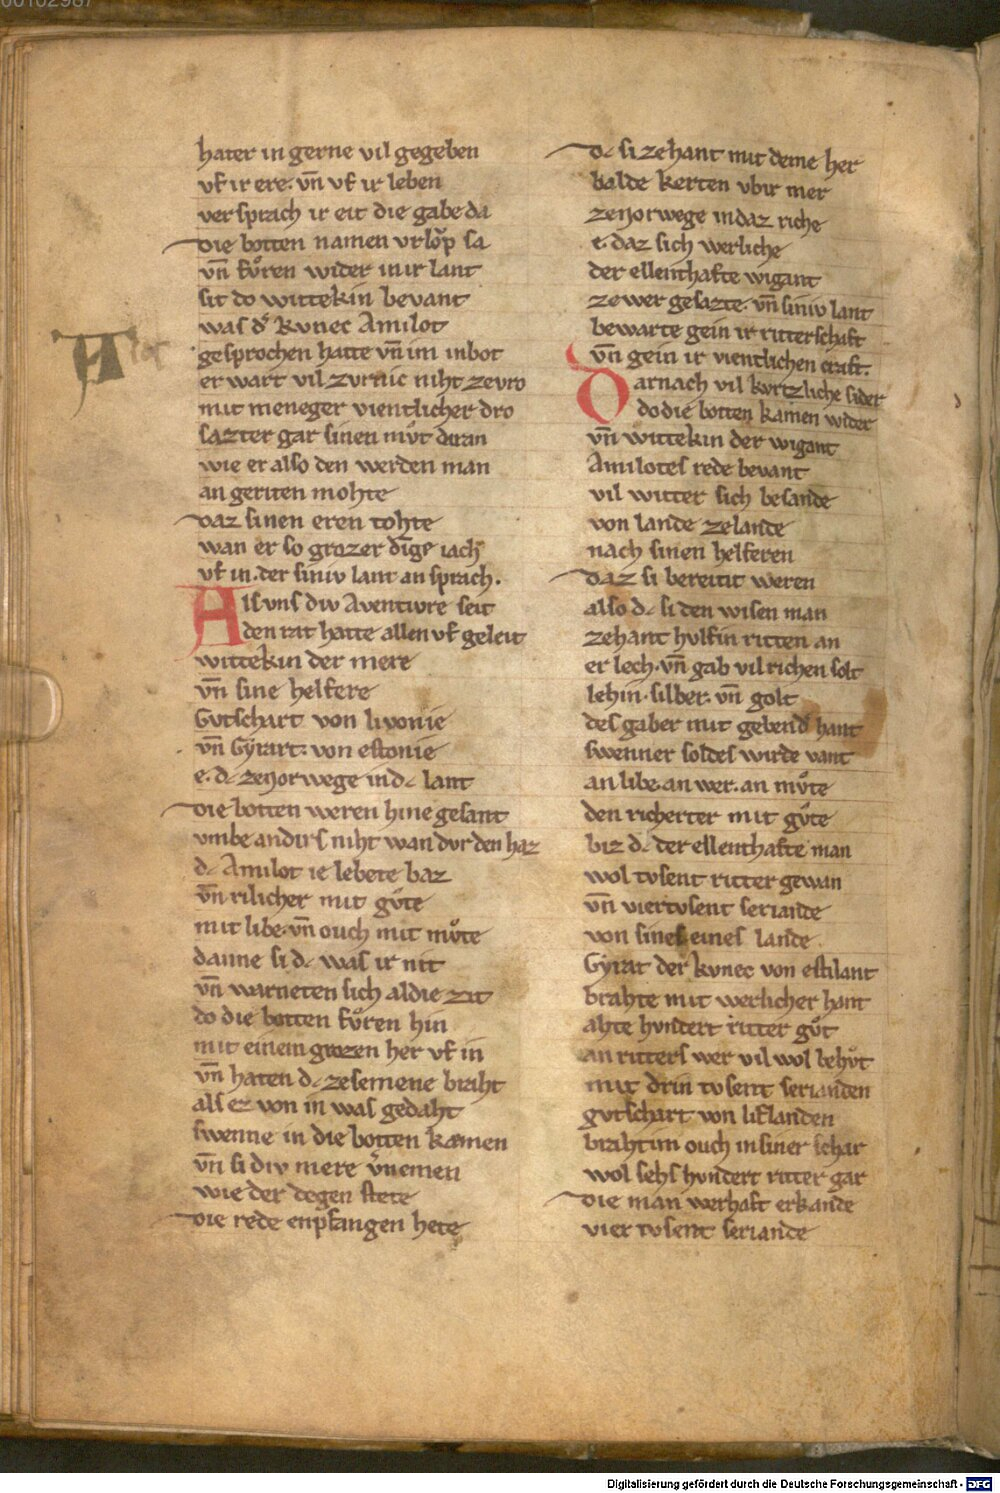 hater in gerne vil gegeben
vf ir ere. vn̄ vf ir leben
versprach ir eit die gabe da
die botten namen vrlop sa
vn̄ fůren wider in ir lant
sit do wittekin bevant
was d' kvnec Amilot
gesprochen hatte vn̄ im inbot
er wart vil zvrnic niht ze vro
mit meneger vientlicher dro
sazter gar sinen můt daran
wie er also den werden man
an geriten mohte
daz sinen eren tohte
wan er so grozer dīge iach
vf in. der siniv lant an sprach.
Als vns div Aventivre seit
den rat hatte allen vf geleit
wittekin der mere
vn̄ sine helfere
Gvtschart von livonie
vn̄ Gyrart. von estonie
e. dc zenorwege in dc lant
die botten weren hine gesant
vmbe andirs niht wan dvr den haz
dc Amilot ie lebete baz
vn̄ rilicher mit gůte
mit libe. vn̄ ouch mit můte
danne si dc was ir nit
vn̄ warneten sich al die zit
do die botten fůren hin
mit einem grozen her vf in
vn̄ haten dc zesemene braht
als ez von in was gedaht
swenne in die botten kamen
vn̄ si div mere v'nemen
wie der degen stete
die rede enpfangen hete
dc si zehant mit deme her
balde kerten vbir mer
zenorwege in daz riche
e. daz sich werliche
der ellenthafte wigant
ze wer gesazte. vn̄ siniv lant
bewarte gein ir ritterschaft
vn̄ gein ir vientlichen craft.
Darnach vil kvrtzliche sider
do die botten kamen wider
vn̄ wittekin der wigant
Amilotes rede bevant
vil witter sich besande
von lande zelande
nach sinen helferen
daz si bereitit weren
also dc si den wisen man
zehant hvlfin ritten an
er lech. vn̄ gab vil richen solt
lehin. silber. vn̄ golt
des gaber mit gebend' hant
swenner soldes wirde vant
an libe. an wer. an můte
den richerter mit gůte
biz dc der ellenthafte man
wol tvsent ritter gewan
vn̄ viertvsent seriande
von sines eines lande
Gyrat der kvnec von estilant
brahte mit werlicher hant
ahte hvndert ritter gůt
an ritters wer vil wol behůt
mit drin tvsent serianden
gvtschart von liflanden
brahtim ouch in siner schar
wol sehs hvndert ritter gar
die man werhaft erkande
vier tvsent seriande
Digitalisierung gefördert durch die Deutsche Forschungsgemeinschaft - DFG